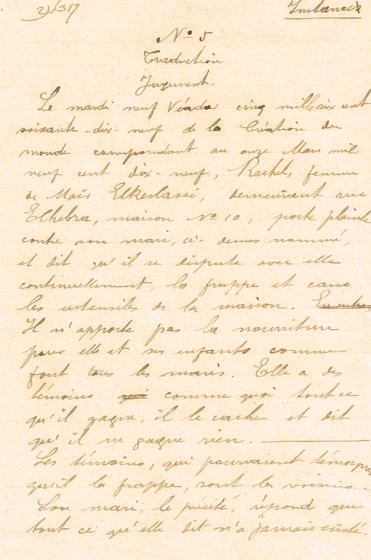 21/3/19 Instance
No 5
Traduction
Jugement.
Le mardi neuf Véadar cinq mille six cent
soixante-dix-neuf de la Création du
monde correspondant au onze Mars mil
neuf cent dix-neuf, Rachel, femme
de Moïs, demeurant rue
Elhebra, maison No 10, porte plainte
contre son mari, ci-dessus nommé,
et dit qu'il se dispute avec elle
continuellement, la frappe et casse
les ustensiles de la maison. En outre
Il n'apporte pas la nourriture
pour elle et ses enfants comme
font tous les maris. Elle a des
témoins qui comme quoi tout ce
qu'il gagne, il le cache et dit
qu'il ne gagne rien.
Les témoins, qui pourraient témoigner
qu'il la frappe, sont les voisins.
Son mari, le précité, répond que
tout ce qu'elle dit n'a jamais existé.